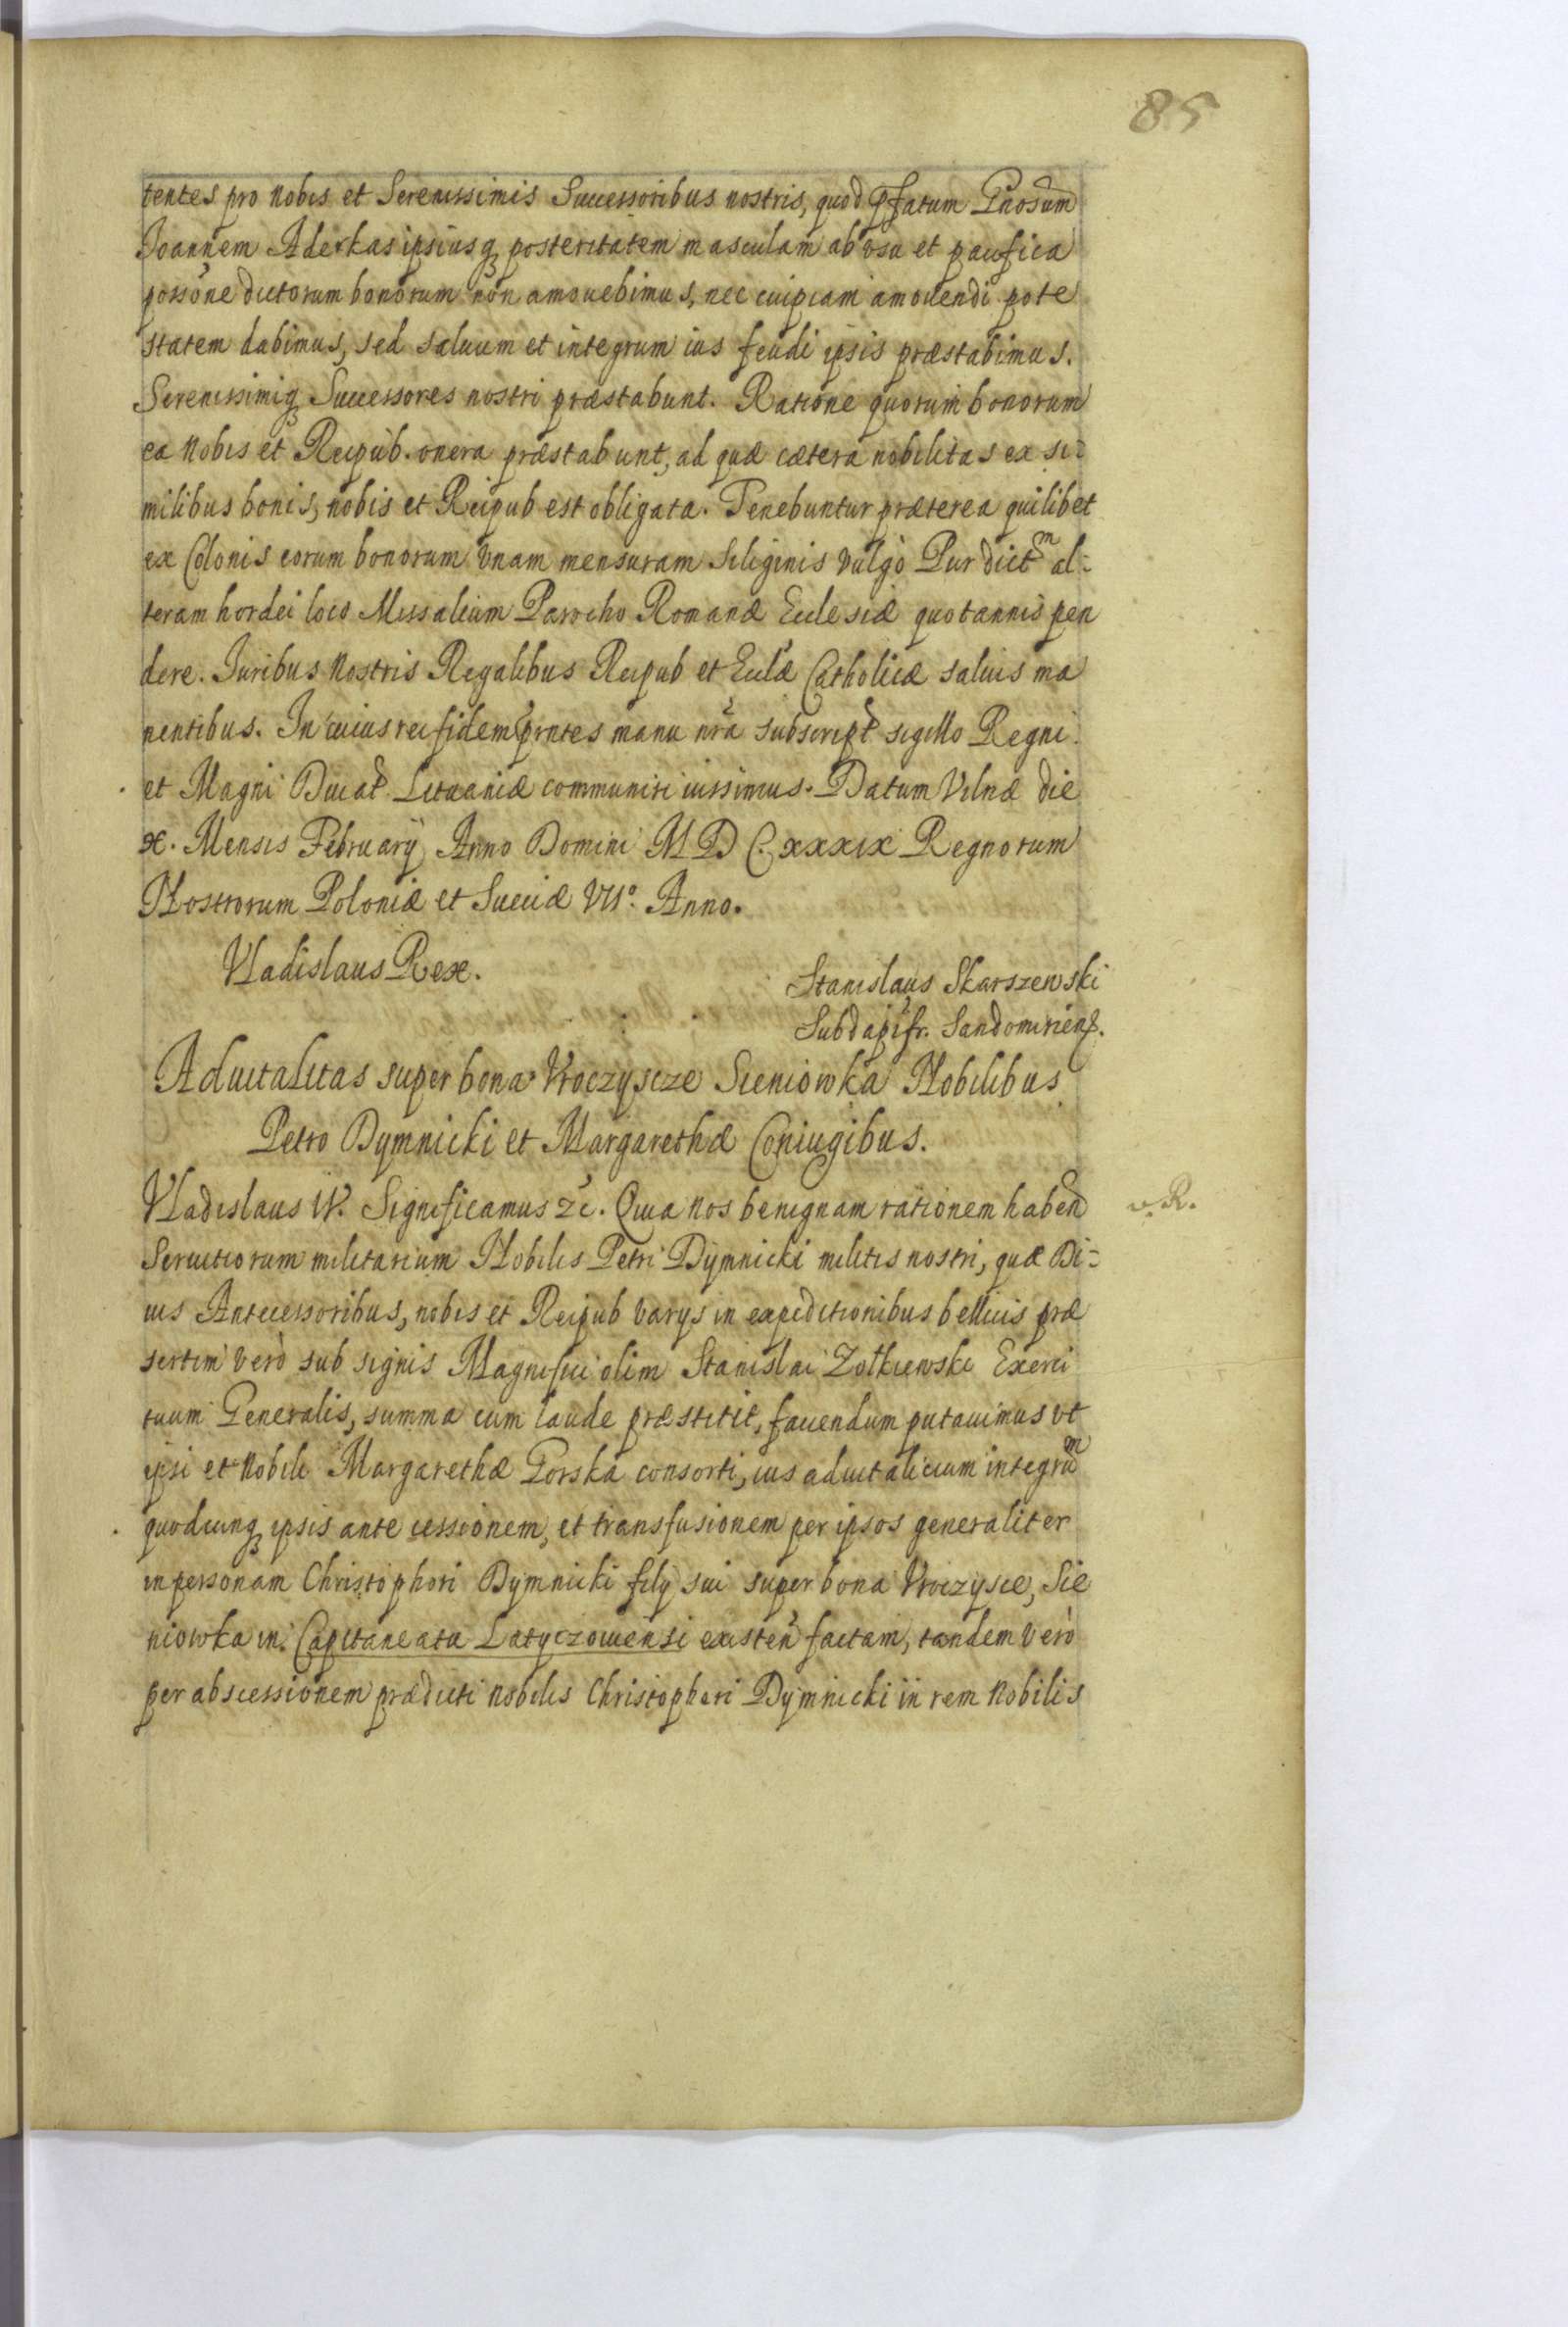 85
tentes pro nobis et Serenissimis Successoribus nostris, quod pfatum Gnosum
Joannem Aderkas ipsiusq posteritatem masculam ab vsu et pacifica
possone dictorum bonorum non amouebimus, nec cuipiam amouendi pote
statem dabimus, sed saluum et integrum ius feudi ipsis præstabimus.
Serenissimiq Successores nostri præstabunt. Ratione quorum bonorum
ea nobis et Reipub. onera præstabunt, ad quæ cætera nobilitas ex si=
milibus bonis, nobis et Reipub est obligata. Tenebuntur præterea quilibet
ex Colonis eorum bonorum vnam mensuram siliginis vulgò Pur dictm al=
teram hordei loco Missalium Parocho Romanæ Ecclesiæ quotannis pen
dere. Juribus nostris Regalibus Reipub et Eclæ Catholicæ saluis ma
nentibus. In cuius rei fidem prntes manu nra subscript sigillo Regni
et Magni Ducat Lituaniæ communiri iussimus. Datum Vilnæ die
x. Mensis February Anno Domini MDCxxxix Regnorum
Nostrorum Poloniæ et Sueciæ VIIo. Anno.
Vladislaus Rex.
Stanislaus Skarszewski
Subdapifr. Sandomiriens.
Aduitalitas super bona Vroczyscze Sieniowka Nobilibus
Petro Dymnicki et Margarethæ Coniugibus.
Vladislaus IV. Significamus &c. Quia nos benignam rationem habend
v. R.
seruitiorum militarium Nobilis Petri Dymnicki militis nostri, quæ Di=
uis Antecessoribus, nobis et Reipub varys in expeditionibus bellicis præ
sertim verò sub signis Magnifici olim Stanislai Zolkiewski Exerci
tuum Generalis, summa cum laude præstitit, fauendum putauimus vt
ipsi et Nobili Margarethæ Gorska consorti, ius aduitalicium integrum
quodcunq ipsis ante cessionem, et transfusionem per ipsos generaliter
in personam Christophori Dymnicki fily sui super bona Vroczysce, Sie
niowka in Capitaneatu Latyczouiensi existen factam, tandem verò
per abscessionem prædicti nobilis Christophori Dymnicki in rem Nobilis